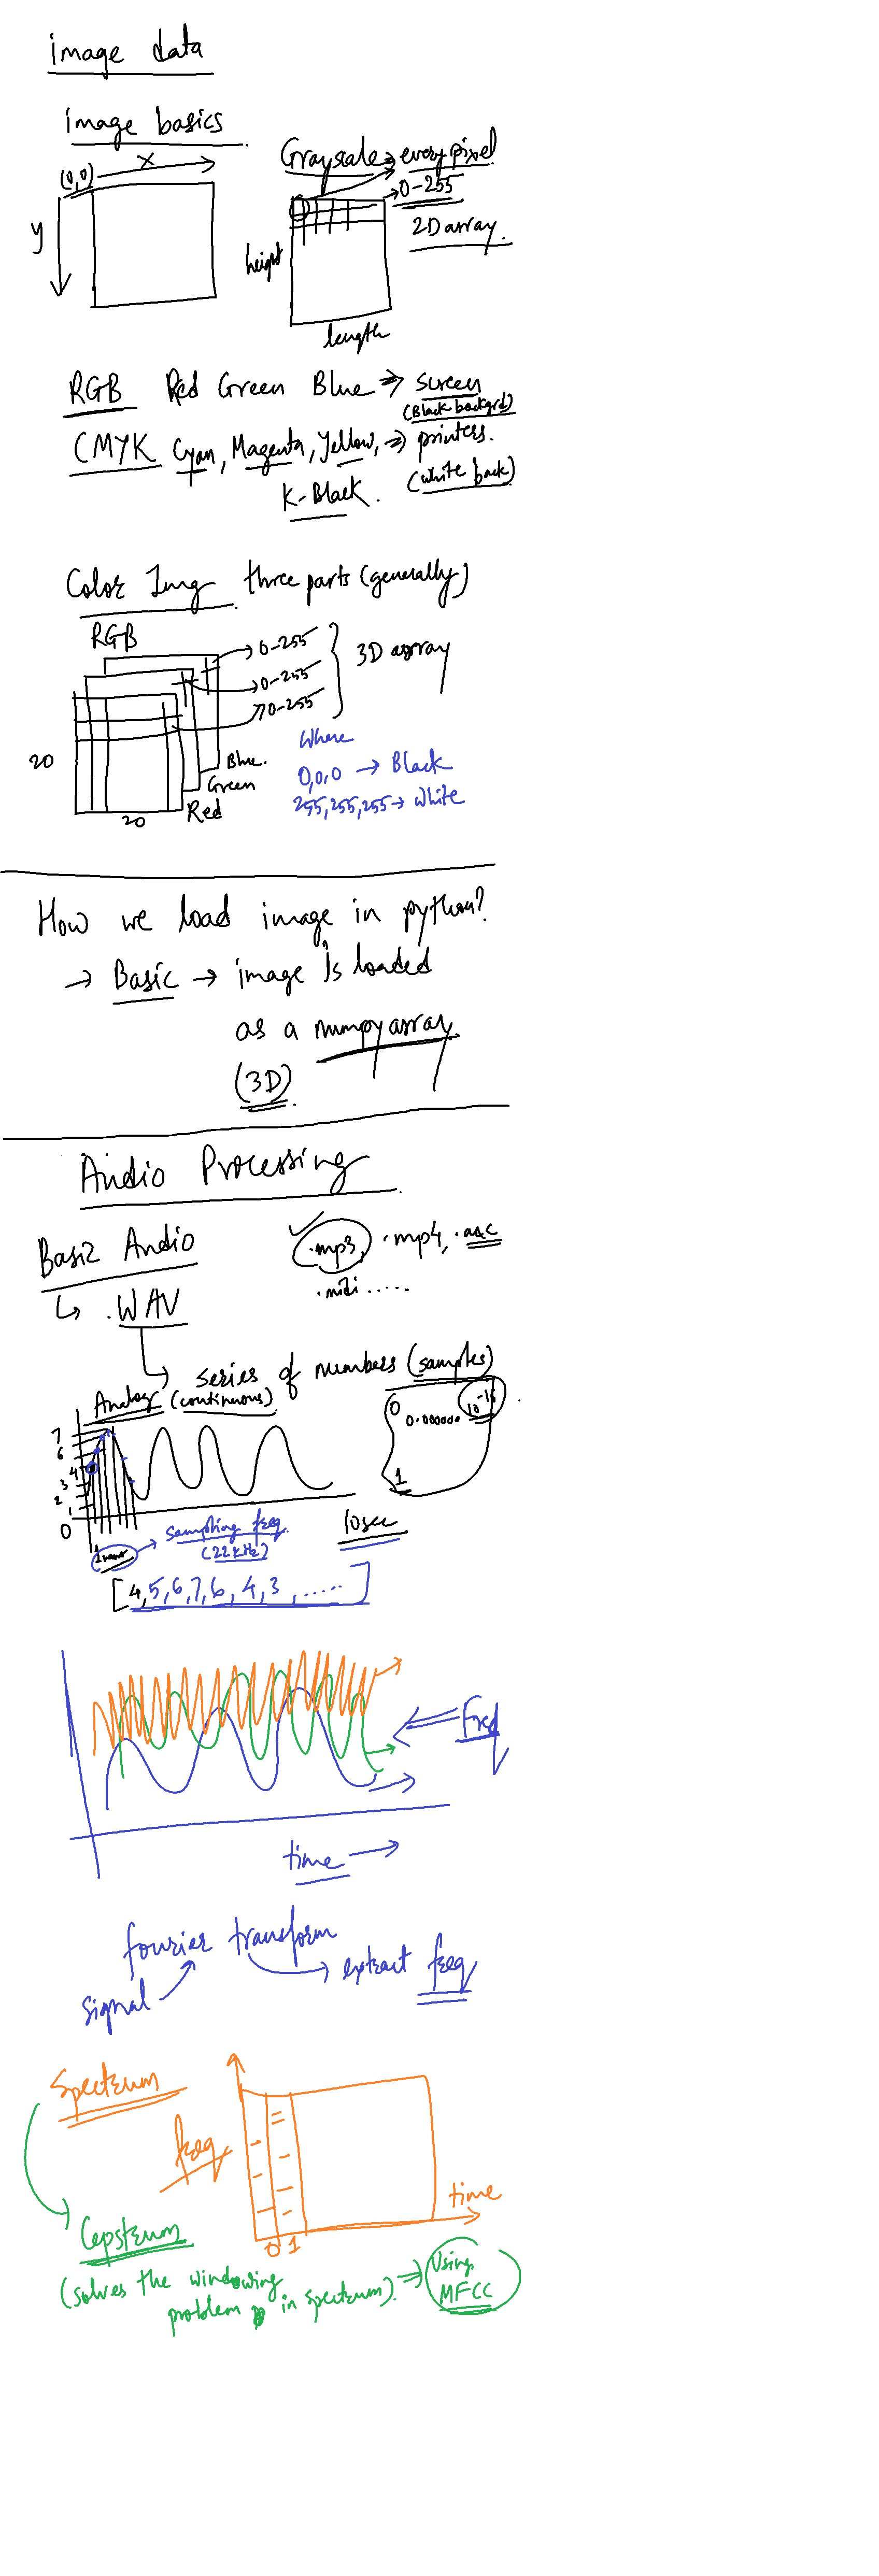 image data
image basics
(0,0) x
y
Grayscale → every pixel
→ 0-255
2D array.
height
length
RGB Red Green Blue ⇒ screen
(Black backgrd)
CMYK Cyan, Magenta, Yellow, ⇒ printers.
K-Black. (white back)
Color Img three parts (generally)
RGB
→ 0-255
→ 0-255
→ 0-255
3D array
Where
0,0,0 → Black
255,255,255 → White
20
20
Blue.
Green
Red
How we load image in python?
→ Basic → image is loaded
as a numpy array
(3D).
Audio Processing
Basic Audio
.mp3, .mp4, .aac
.midi .....
↳ .WAV
→ series of numbers (samples)
Analog (continuous)
7
6
4
3
2
1
0
0
0.000000 10
1
→ sampling freq.
(22KHz)
10sec
[4,5,6,7,6, 4,3, .....]
Freq
time →
fourier transform
signal → extract freq
Spectrum
freq
time
0 1
Cepstrum
(solves the windowing
problem in spectrum). ⇒ Using
MFCC